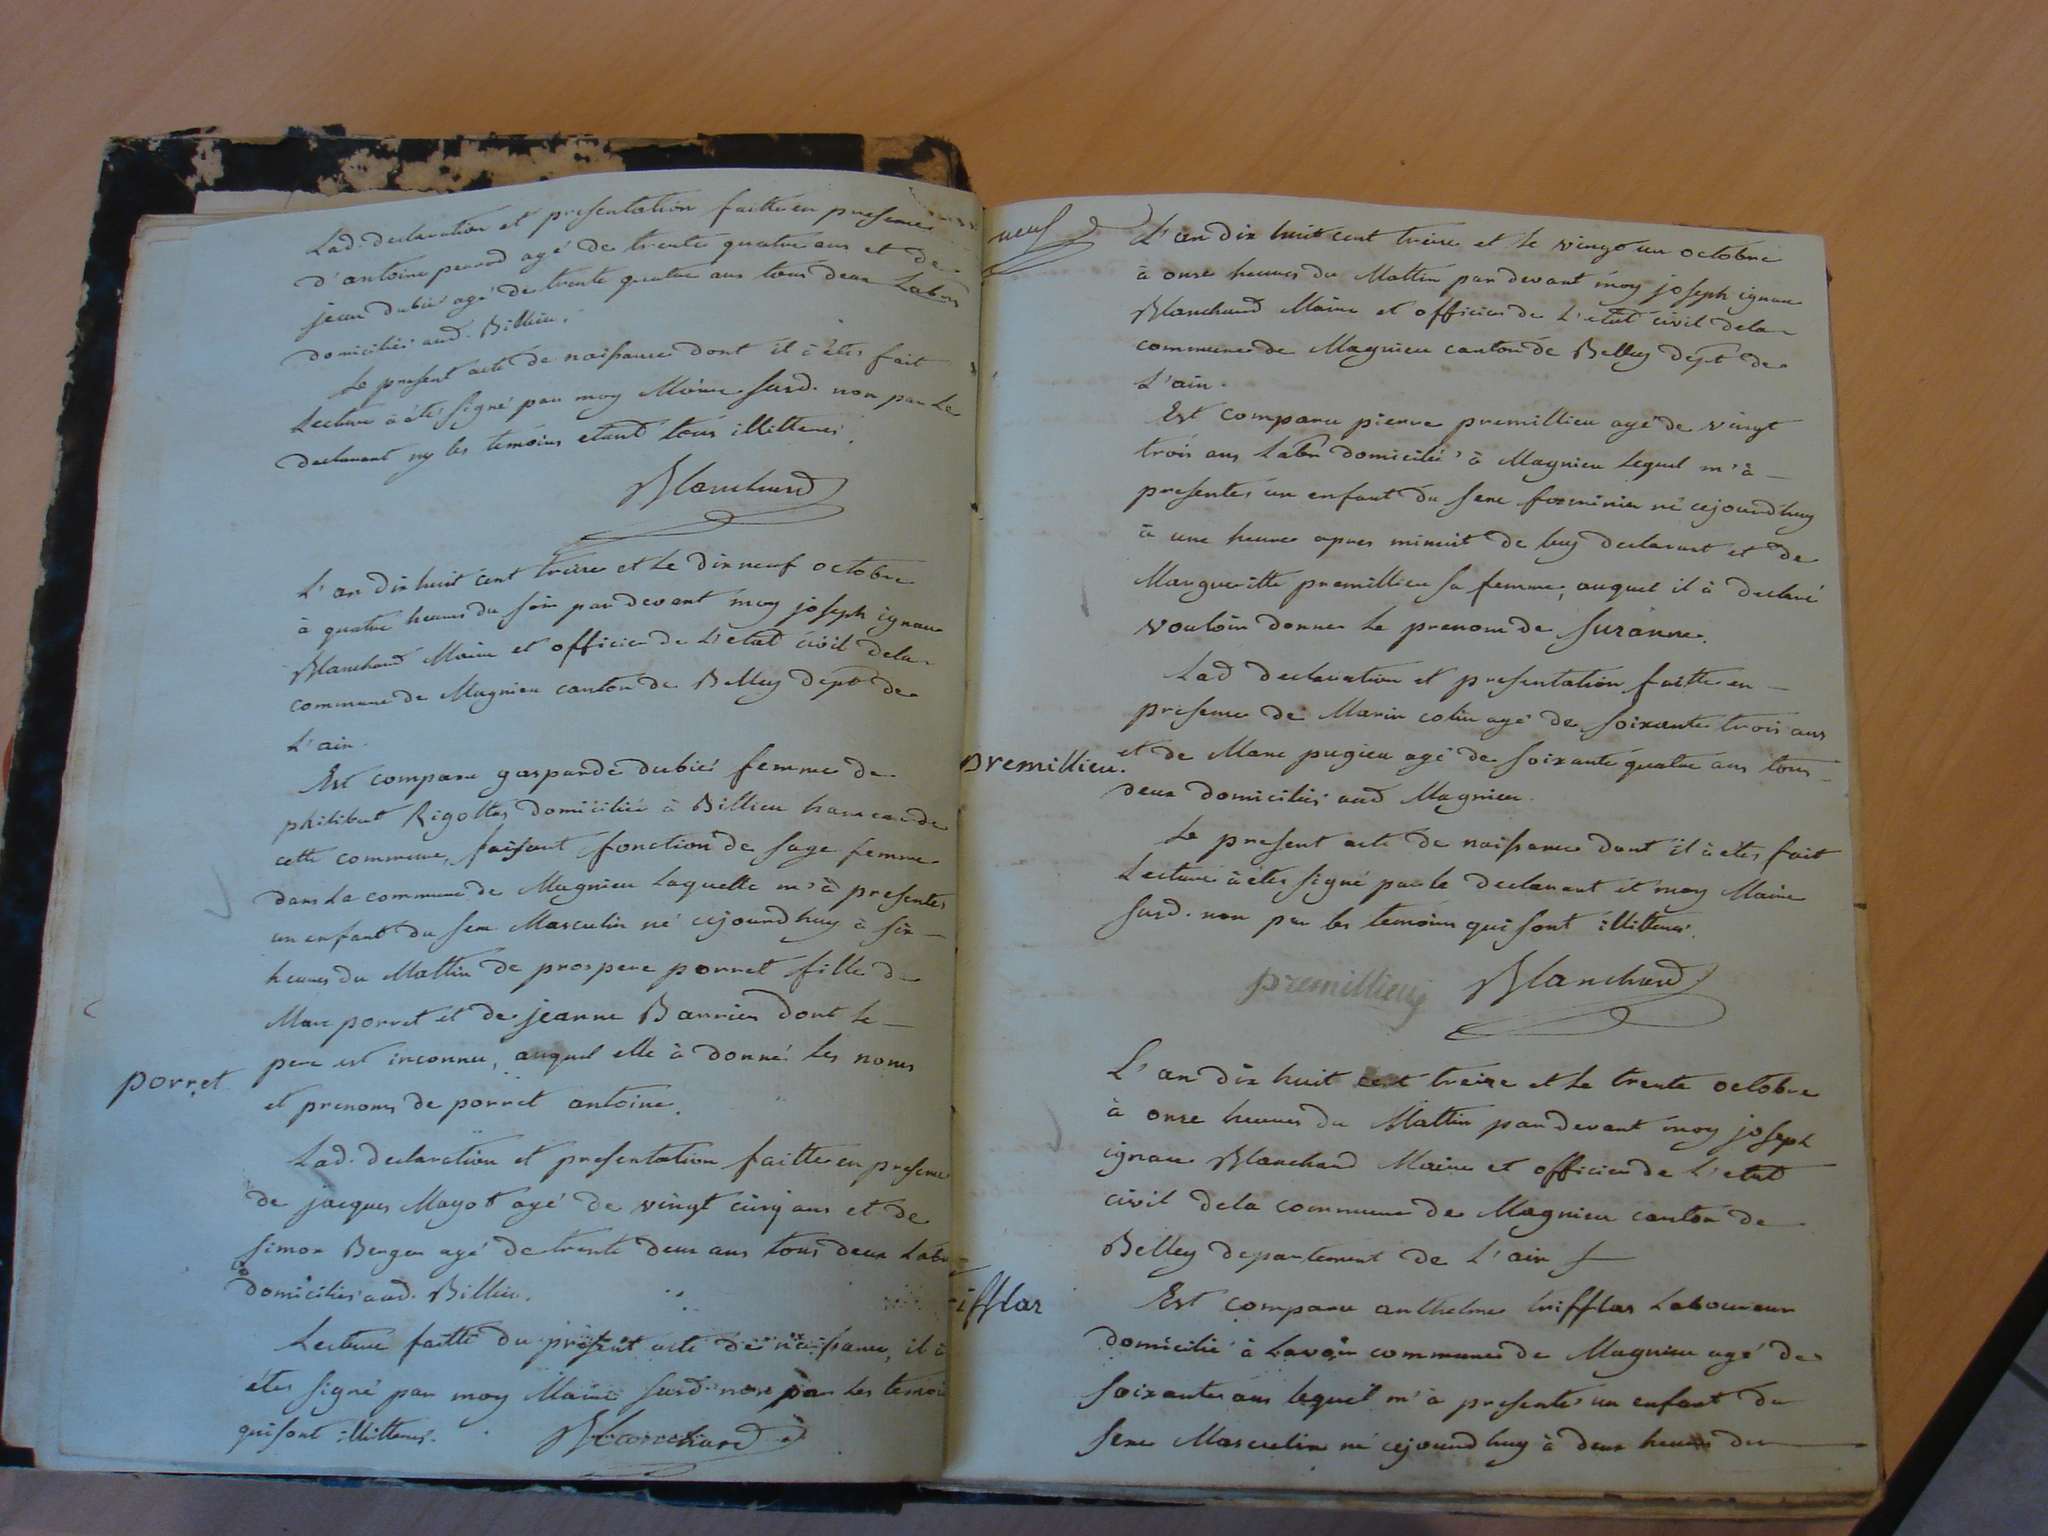 Lad. declaration et presentation faitte en presence
d'antoine perrod agé de trente quatre ans et de
jean dubié agé de trente quatre ans tous deux Labrs
domiciliés aud. Billieu.
Le present acte de naissance dont il à étés fait
Lecture à été signé par moy Maire susd. non par le
declarant ny les temoins etand tous illitterés.
Blanchard
L'an dix huit cent treize et le dix neuf octobre
à quatre heures du soir par devant moy joseph ignace
Blanchard Maire et officier de L'etat civil dela
commune de Magnieu canton de Belley dept de
L'ain.
Est comparu gasparde dubié femme de
philibert Rigottes domiciliée à Billieu hameau de
cette commune, faisant fonction de sage femme
dans la commune de Magnieu Laquelle m'à presentés
un enfant du sexe Masculin né cejourdhuy à six
heures du Mattin de prospere porret fille de
Marc porret et de jeanne Barrier dont le
pere est inconnu, auquel elle à donné les noms
porret
et prenoms de porret antoine.
Lad. declaration et presentation faitte en presence
de jacques Mayot agé de vingt cinq ans et de
simon Berger agé de trente deux ans tous deux Labrs
domiciliés aud. Billieu.
Lecture faitte du present acte de naissance, il à
étes signé par moy Maire susd. non par les temoins
qui sont illitterés.
Blanchard
neuf
L'an dix huit cent treize et le vingt un octobre
à onze heures du Mattin par devant moy joseph ignace
Blanchard Maire et officier de L'etat civil dela
commune de Magnieu canton de Belley dept de
L'ain.
Est comparu pierre premillieu agé de vingt
trois ans Labr domicilié à Magnieu Lequel m'à
presentés un enfant du sexe feminin né cejourdhuy
à une heure apres minuit de luy declarant et de
Margueritte premillieu sa femme, auquel il à declaré
vouloir donner le prenom de suzanne.
Lad declaration et presentation faitte en
presence de Marin colin agé de soixante trois ans
premillieu.
et de Marc pugieu agé de soixante quatre ans tous
deux domiciliés aud Magnieu.
Le present acte de naissance dont il à etes fait
Lecture à étes signé par le declarant et moy Maire
susd. non par les temoins qui sont illitterés.
premillieu Blanchard
L'an dix huit cent treize et le trente octobre
à onze heures du Mattin par devant moy joseph
ignace Blanchard Maire et officier de L'etat
civil dela commune de Magnieu canton de
Belley departement de L'ain
ifflar
Est comparu anthelme trifflar Laboureur
domicilié à Lavoir commune de Magnieu agé de
soixante ans lequel m'à presentés un enfant du
sexe Masculin né cejourdhuy à deux heures du